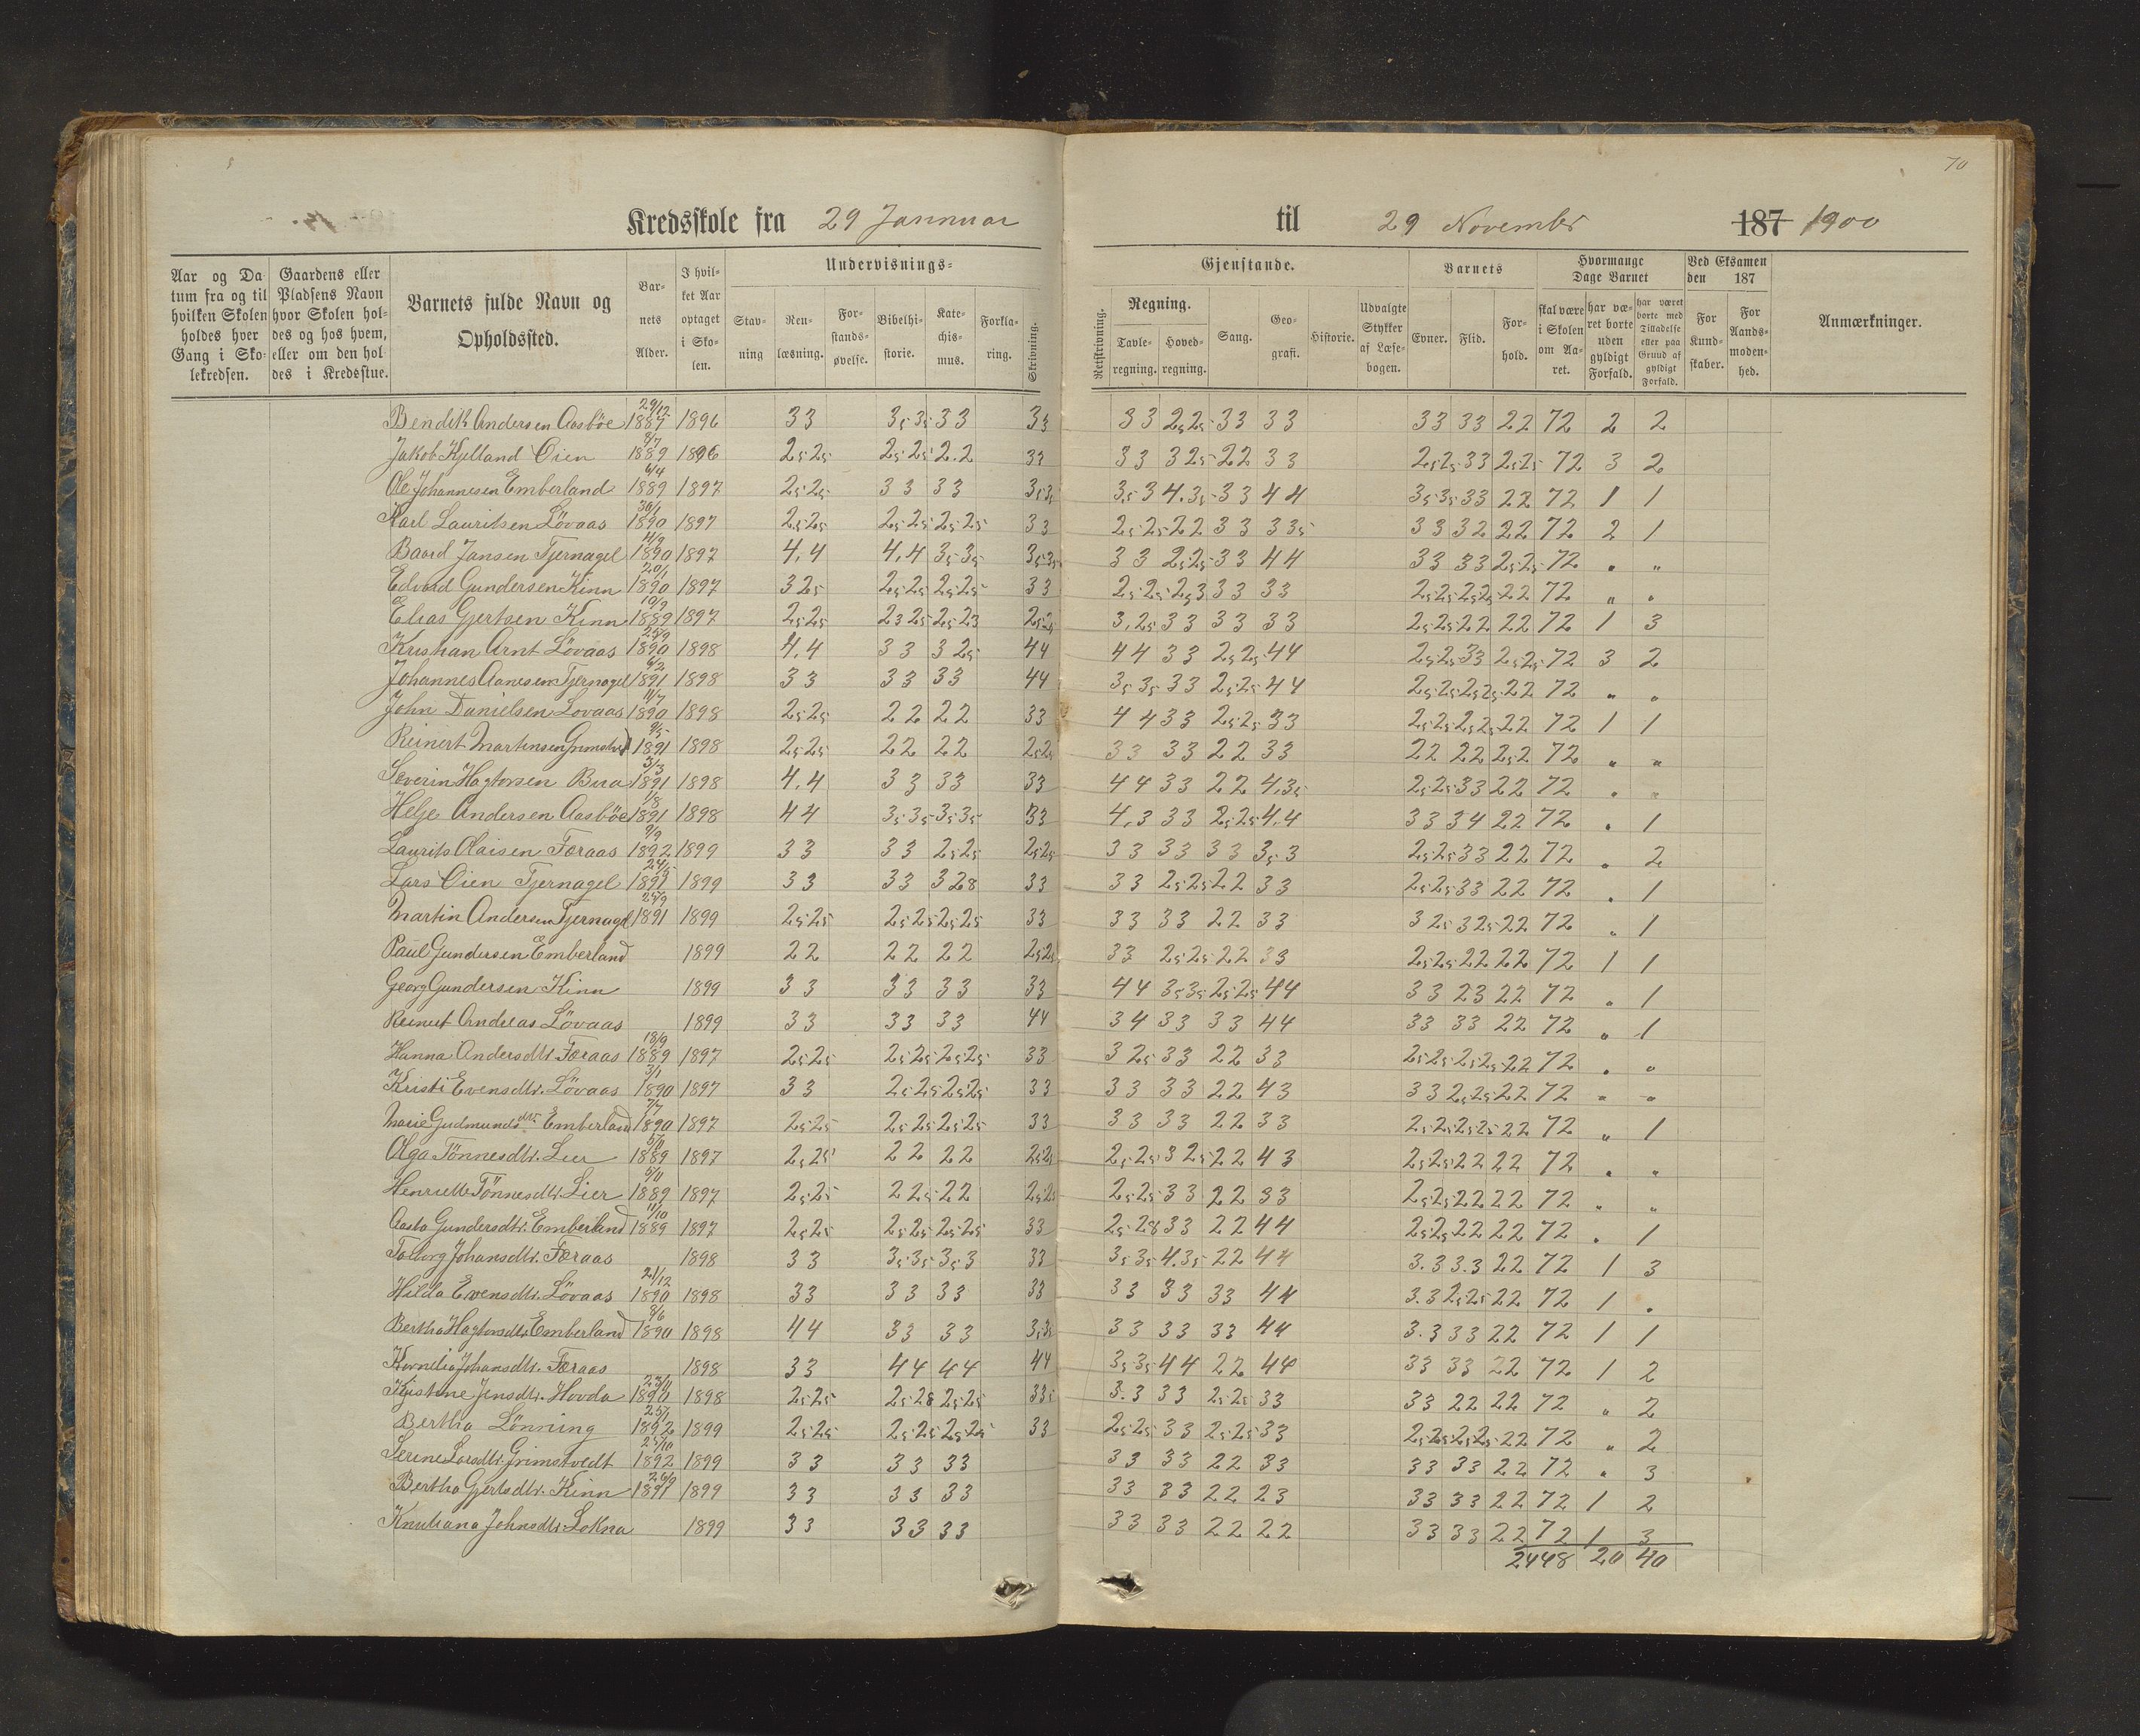 70
Kredsskole fra 29 Jannuar til 29 November 187 1900
Aar og Datum fra og til hvilken Skolen holdes hver Gang i Skolekredsen.
Gaardens eller Pladsens Navn hvor Skolen holdes og hos hvem, eller om den holdes i Kredsstue.
Barnets fulde Navn og Opholdssted.
Barnets Alder.
I hvilket Aar optaget i Skolen.
Undervisnings-
Stavning
Renlæsning.
Forstandsøvelse.
Bibelhistorie.
Katechismus.
Forklaring.
Skrivning.
Gjenstande.
Retskrivning.
Regning.
Tavleregning.
Hovedregning.
Sang.
Geografi.
Historie.
Udvalgte Stykker af Læsebogen.
Barnets
Evner.
Flid.
Forhold.
Hvormange Dage Barnet
skal være i Skolen om Aaret.
har været borte uden gyldigt Forfald.
har været borte med Tilladelse eller paa Grund af gyldigt Forfald.
Ved Eksamen den 187
For Kundskaber.
For Aandsmodenhed.
Anmærkninger.
Bendik Andersen Aasböe 29/12 1887 1896 33 3,5 3,5 33 33 33 2,5 2,5 33 33 33 33 22 72 2 2
Jakob Kjelland Öien 8/7 1889 1896 2,5 2,5 2,5 2,5 2.2 33 33 3 2,5 22 33 2,5 2,5 33 2,5 2,5 72 3 2
Ole Johannesen Emberland 6/4 1889 1897 2,5 2,5 33 33 3,5 3,5 3,5 3 4.3,5 33 44 3,5 3,5 33 22 72 1 1
Karl Lauritsen Lövaas 30/1 1890 1897 2,5 2,5 2,5 2,5 2,5 2,5 33 2,5 2,5 22 33 3 3,5 33 32 22 72 2 1
Baard Jansen Tjernagel 1890 1897 4,4 4,4 3,5 3,5 3,5 3,5 33 2,5 2,5 33 44 33 33 2,5 2,5 72 " "
Edvard Gundersen Kinn 20/1 1890 1897 3 2,5 2,5 2,5 2,5 2,5 33 2,5 2,5 2,5 3 33 33 2,5 2,5 2,5 2,5 22 72 " "
Elias Gjertsen Kinn 10/9 1889 1897 2,5 2,5 23 2,5 2,5 23 2,5 2,5 3,2,5 33 33 33 2,5 2,5 22 22 72 1 3
Kristian Arnt Lövaas 25/9 1890 1898 4,4 33 3 2,5 44 44 33 2,5 2,5 44 2,5 2,5 33 2,5 2,5 72 3 2
Johannes Aanesen Tjernagel 6/2 1891 1898 33 33 33 44 3,5 3,5 33 2,5 2,5 44 2,5 2,5 2,5 2,5 22 72 " "
John Danielsen Lovaas 11/7 1890 1898 2,5 2,5 22 22 33 44 33 2,5 2,5 33 2,5 2,5 2,5 2,5 22 72 1 1
Reinert Martinsen Grimstvedt 9/5 1891 1898 2,5 2,5 22 22 2,5 2,5 33 33 22 33 22 22 2,5 2 72 " "
Severin Hagtorsen Bua 3/3 1891 1898 4,4 33 33 33 44 33 22 4,3,5 2,5 2,5 33 22 72 " "
Helje Andersen Aasböe 1/8 1891 1898 44 3,5 3,5 3,5 3,5 33 4,3 33 2,5 2,5 4,4 33 34 22 72 " 1
Laurits Olaisen Færaas 9/9 1892 1899 33 33 2,5 2,5 2,5 2,5 33 33 33 3,5 3 2,5 2,5 33 22 72 " 2
Lars Öien Tjernagel 1891 1899 33 33 3 28 33 33 2,5 2,5 22 33 2,5 2,5 33 22 72 " 1
Martin Andersen Tjernagel 25/9 1891 1899 2,5 2,5 2,5 2,5 2,5 2,5 33 33 33 22 33 3 2,5 3 2,5 22 72 " 1
Paul Gundersen Emberland 1899 22 22 22 2,5 2,5 33 2,5 2,5 22 33 2,5 2,5 22 22 72 1 1
Georg Gundersen Kinn 1899 33 33 33 33 44 3,5 3,5 2,5 2,5 44 33 23 22 72 " 1
Reinert Andreas Lövaas 1899 33 33 33 44 34 33 33 44 33 33 22 72 " 1
Hanna Andersdtr. Færaas 18/9 1889 1897 2,5 2,5 2,5 2,5 2,5 2,5 33 3 2,5 33 22 33 2,5 2,5 2,5 2,5 22 72 " "
Kristi Evensdtr. Lövaas 3/1 1890 1897 33 2,5 2,5 2,5 2,5 33 33 33 22 43 33 2,5 2,5 22 72 " "
Marie Gudmundsdtr Emberland 7/7 1890 1897 2,5 2,5 2,5 2,5 2,5 2,5 33 33 33 22 33 2,5 2,5 2,5 2,5 22 72 " 1
Olga Tönnesdtr. Lier 5/11 1889 1897 2,5 2,5 22 22 2,5 2,5 2,5 2,5 3 2,5 22 43 2,5 2,5 22 22 72 " "
Henriette Tönnesdtr. Lier 5/11 1889 1897 2,5 2,5 2 2,5 22 2,5 2,5 2,5 2,5 33 22 33 2,5 2,5 22 22 72 " "
Aasta Gundersdtr. Emberland 11/10 1889 1897 2,5 2,5 2,5 2,5 2,5 2,5 33 2,5 28 33 22 44 2,5 2,5 22 22 72 " 1
Johansdtr. Færaas 1898 33 3,5 3,5 3,5 3 33 3,5 3,5 4.3,5 22 44 3.3 3.3 22 72 1 3
Hilda Evensdtr. Lövaas 21/12 1890 1898 33 33 33 33 33 33 33 44 3.3 2,5 2,5 22 72 1 "
Bertha Hagtorsdtr Emberland 3/6 1890 1898 44 33 33 3,5 3,5 33 33 33 44 3.3 33 22 72 1 1
Kornelia Johansdtr. Færaas 1898 33 44 44 44 3,5 3,5 44 22 44 33 33 22 72 1 2
Kjistine Jensdtr. Hovda 23/11 1890 1898 2,5 2,5 2,5 28 2,5 2,5 3 3,5 3.3 33 2,5 2,5 33 33 22 22 72 " 2
Bertha Lönning 25/1 1892 1899 2,5 2,5 2,5 2,5 2,5 2,5 33 2,5 2,5 33 2,5 2,5 33 2,5 2,5 2,5 2,5 22 72 " 2
Serine Larsdtr. Grimstvedt 25/10 1892 1899 33 33 33 33 33 22 33 33 33 22 72 " 3
Bertha Gjertsdtr. Kinn 26/9 1891 1899 33 33 33 33 33 22 23 33 33 22 72 1 2
Knutiana Johnsdtr. Lokna 1899 33 33 33 33 33 22 22 33 33 22 72 1 3
2448 20 40